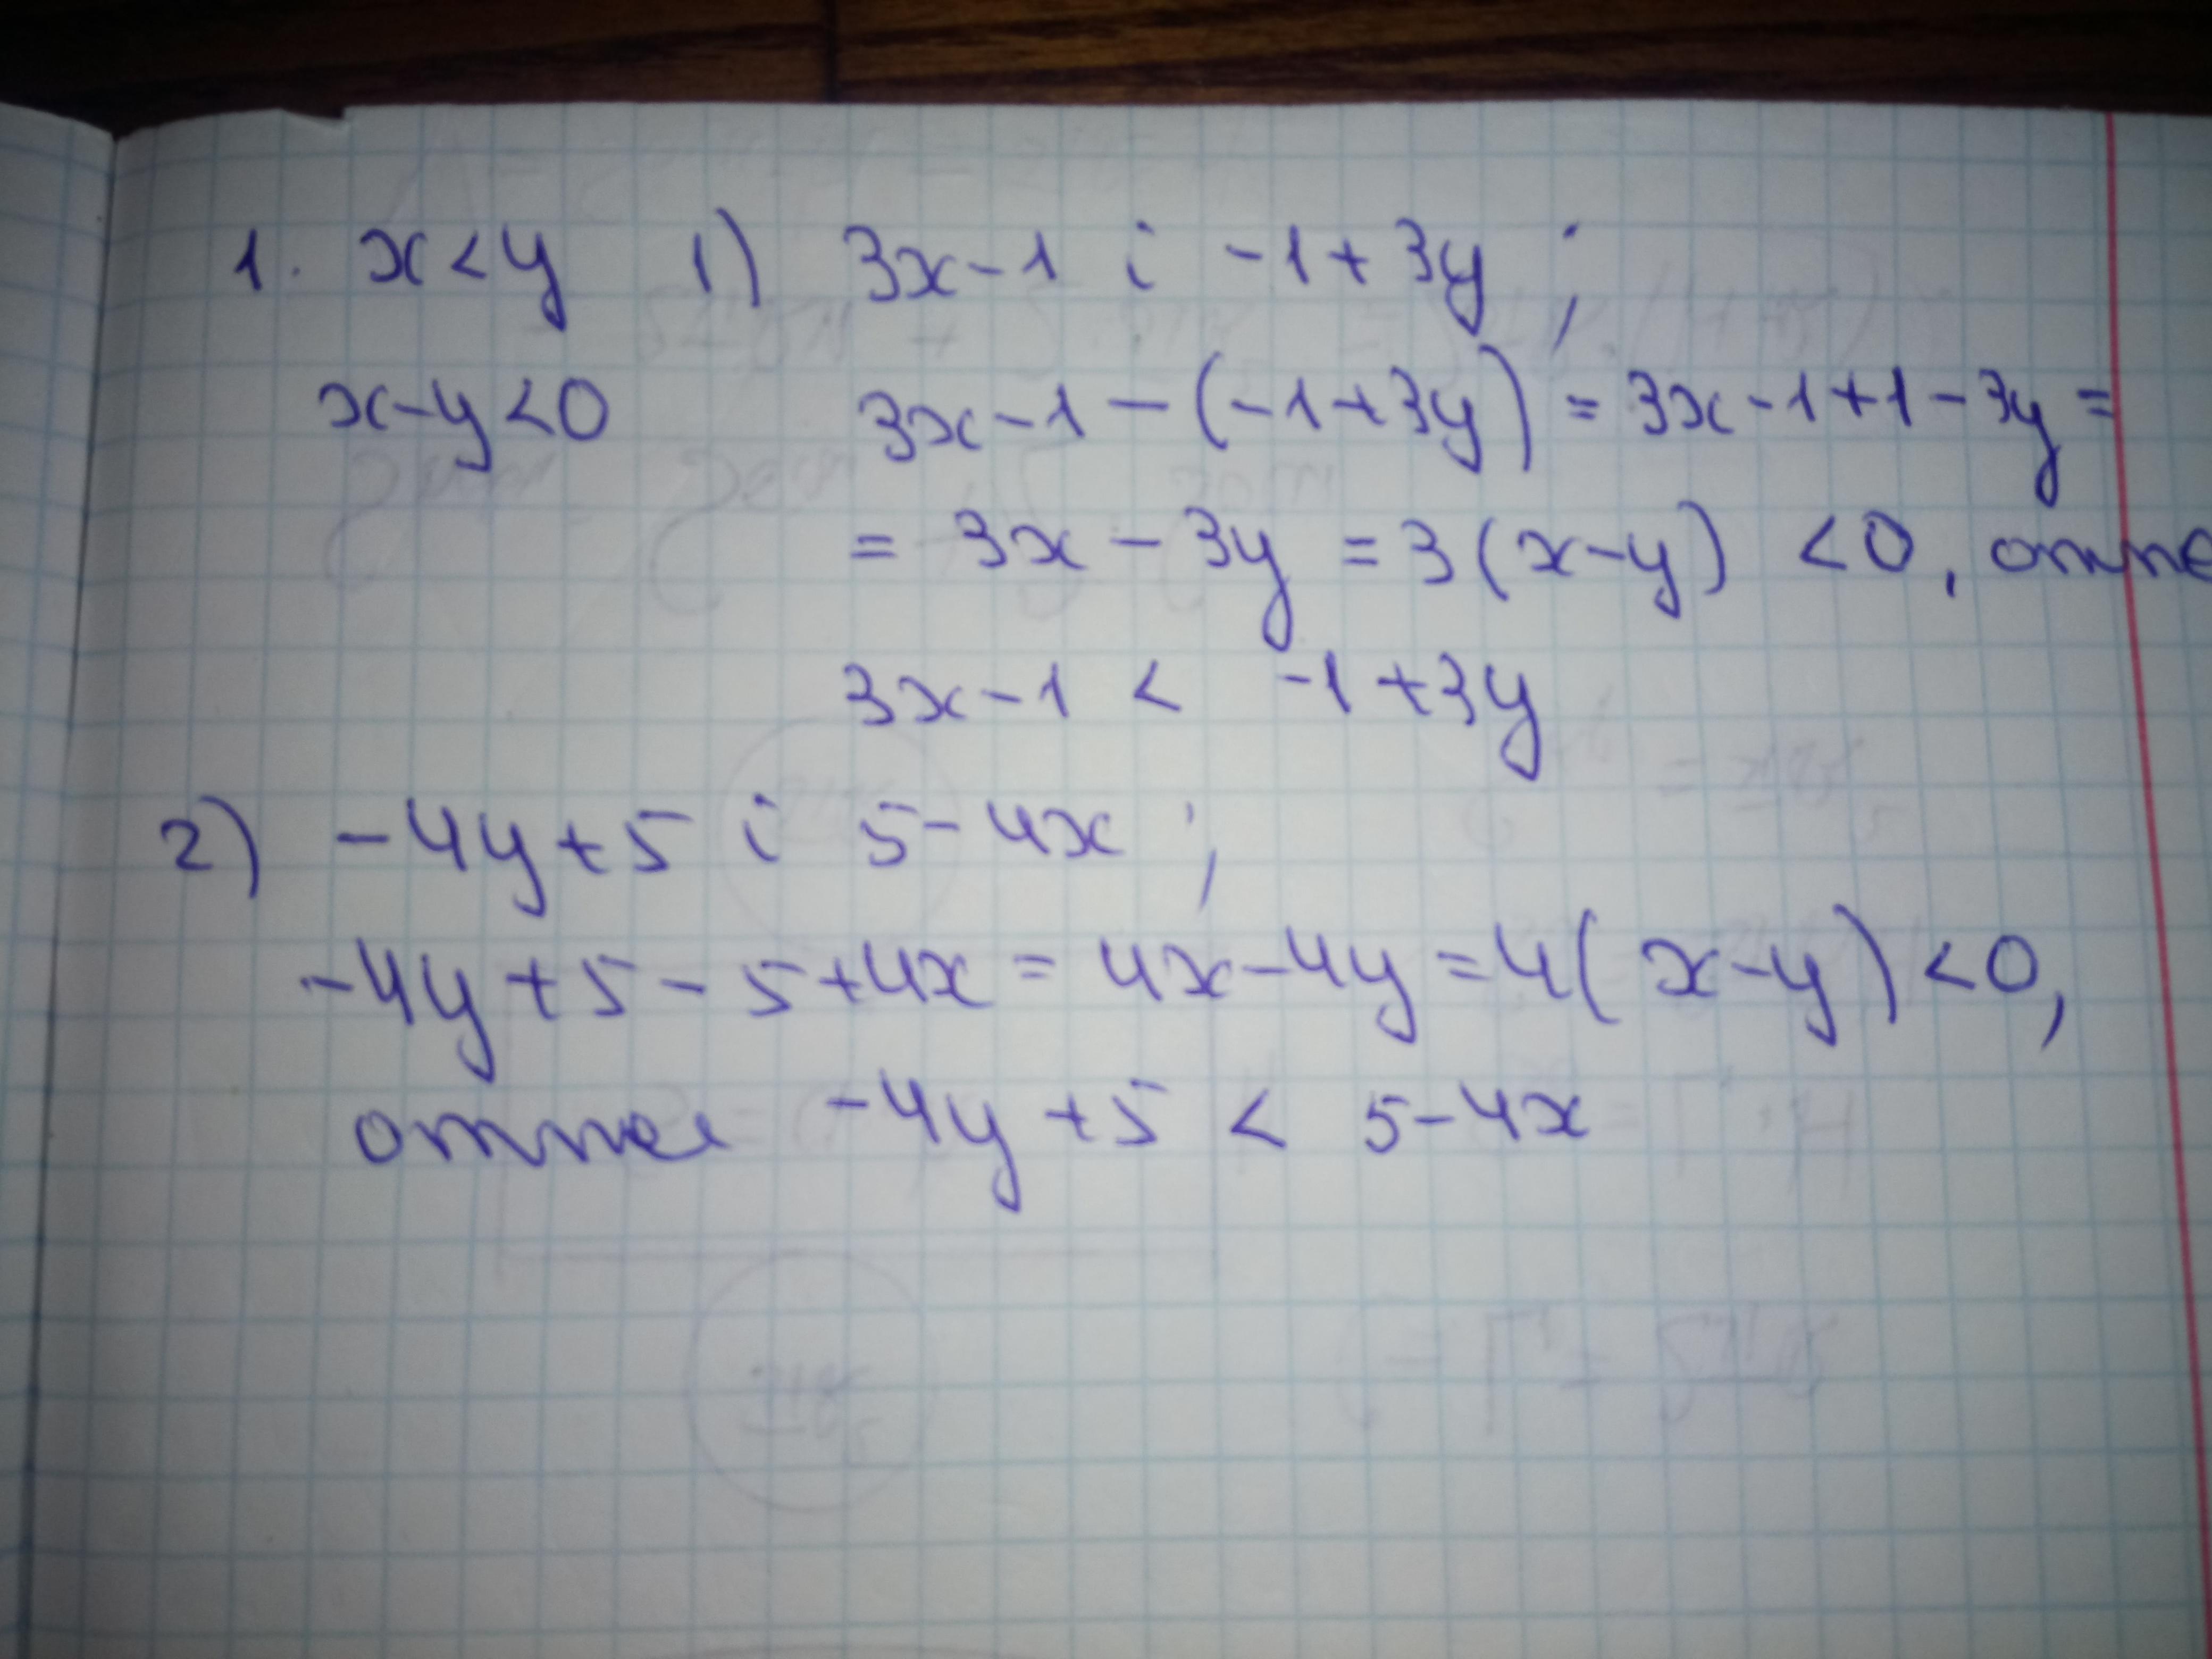 1. x<y 1) 3x-1 i -1+3y;
x-y<0 3x-1-(-1+3y)=3x-1+1-3y=
=3x-3y=3(x-y)<0, отже
3x-1<-1+3y
2) -4y+5 i 5-4x;
-4y+5-5+4x=4x-4y=4(x-y)<0,
отже -4y+5<5-4x